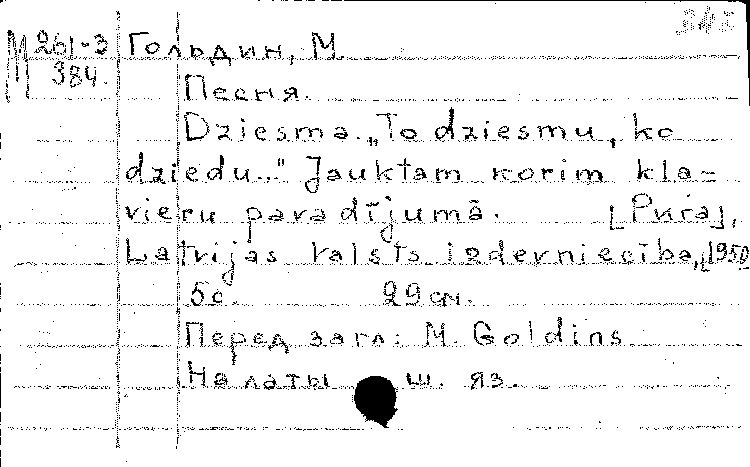 М 261-3 Гольдин, М.
384.
Песня.
Dziesma. „To dziesmu, ko
dziedu..." Jauktam korim kla=
vieru pavadījumā. [Рига],
Latvijas Valsts izdevniecība, [1950
5 с. 29 см.
Перед загл: M. Goldins.
На латыш. яз.